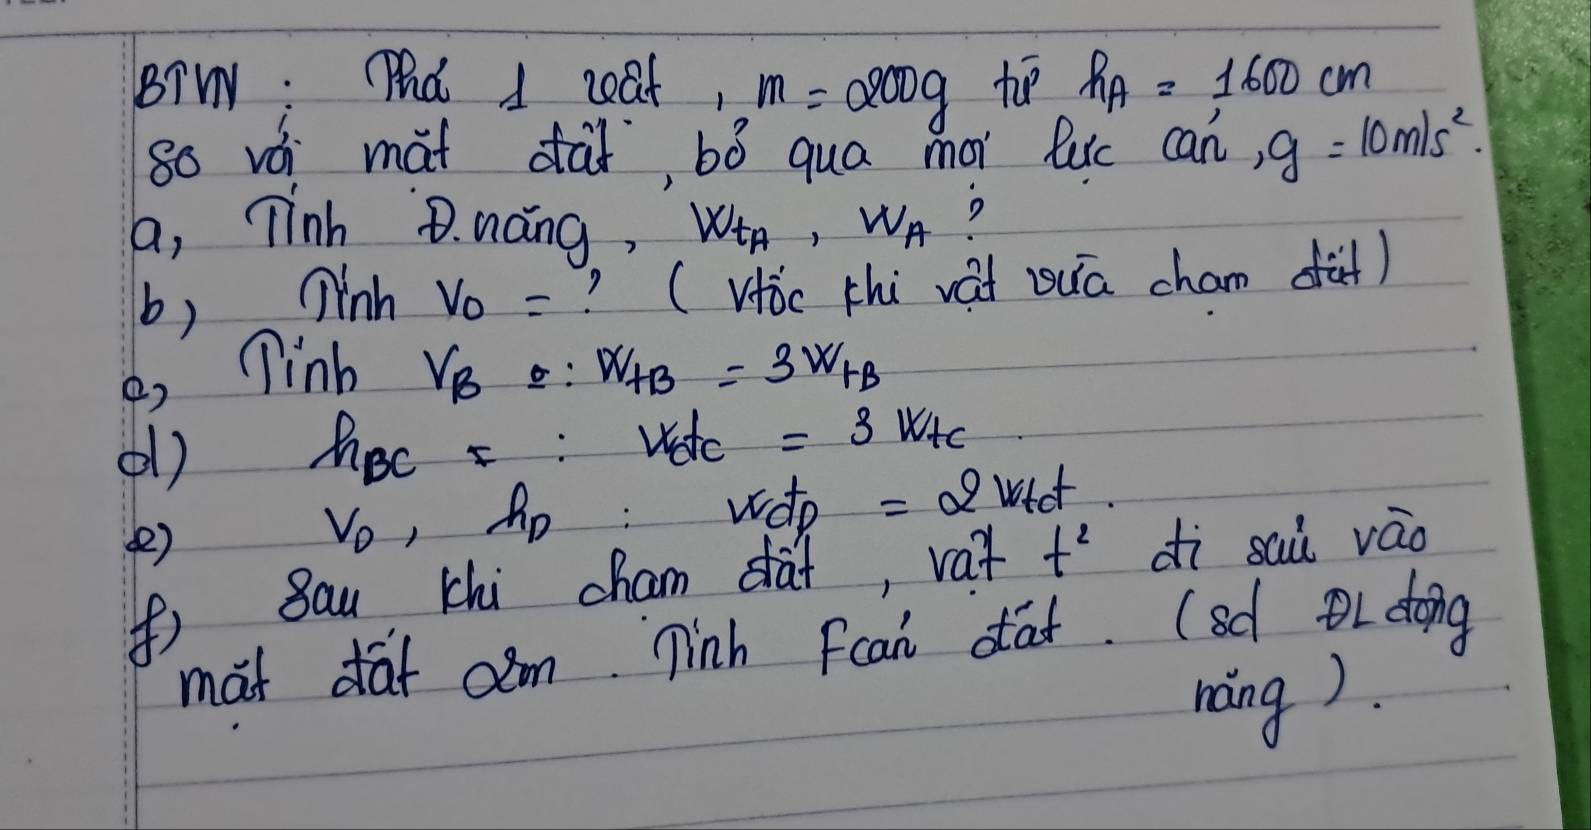 BTVN : Thả 1 vật , m = 200g từ hA = 1600 cm
so với mặt đất , bỏ qua mọi lực cản , g = 10m/s².
a, Tính Đ.năng , WtA , WA ?
b) Tính Vo = ? ( vtốc khi vật vừa chạm đất )
c, Tính VB : WtB = 3WtB
d) hBC = : Wđc = 3 Wtc
e) VD , hD : WđD = 2 Wtđ .
f) Sau khi chạm đất , vật t² đi sâu vào
mặt đất 2m . Tính Fcản đất . ( sd ĐL động
năng ) .